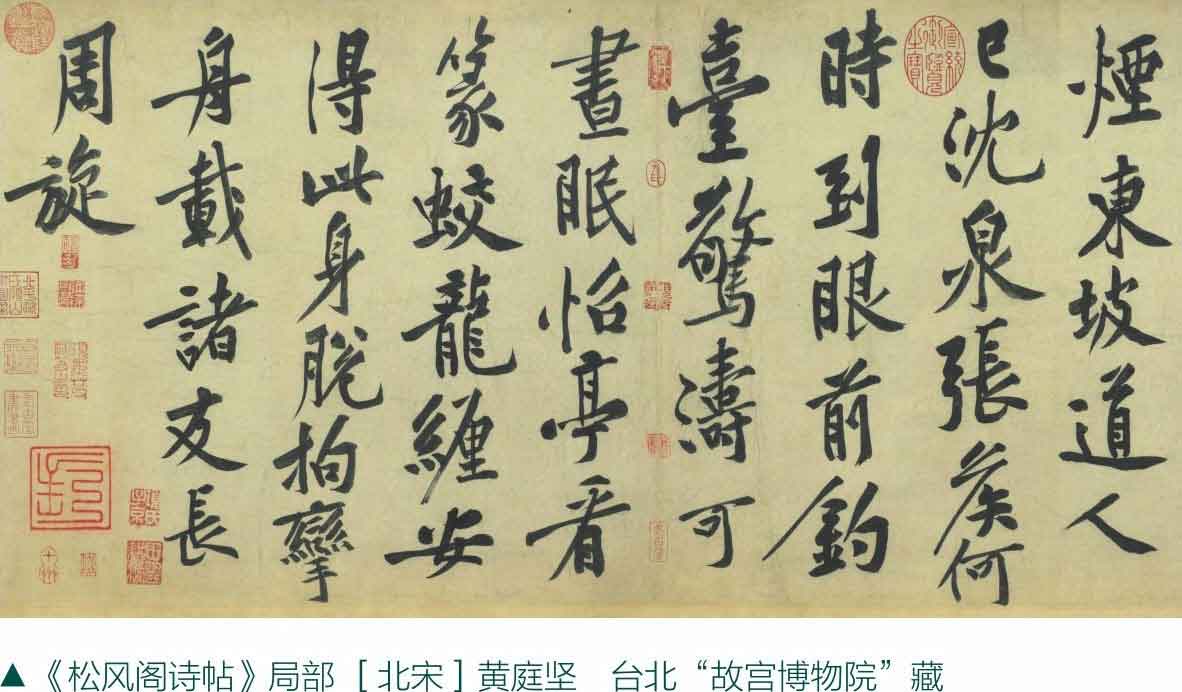 煙東坡道人
已沈泉張侯何
時到眼前釣
臺驚濤可
晝眠怡亭看
篆蛟龍纏安
得此身脫拘攣
舟載諸友長
周旋
▲《松风阁诗帖》局部 [北宋] 黄庭坚 台北“故宫博物院”藏